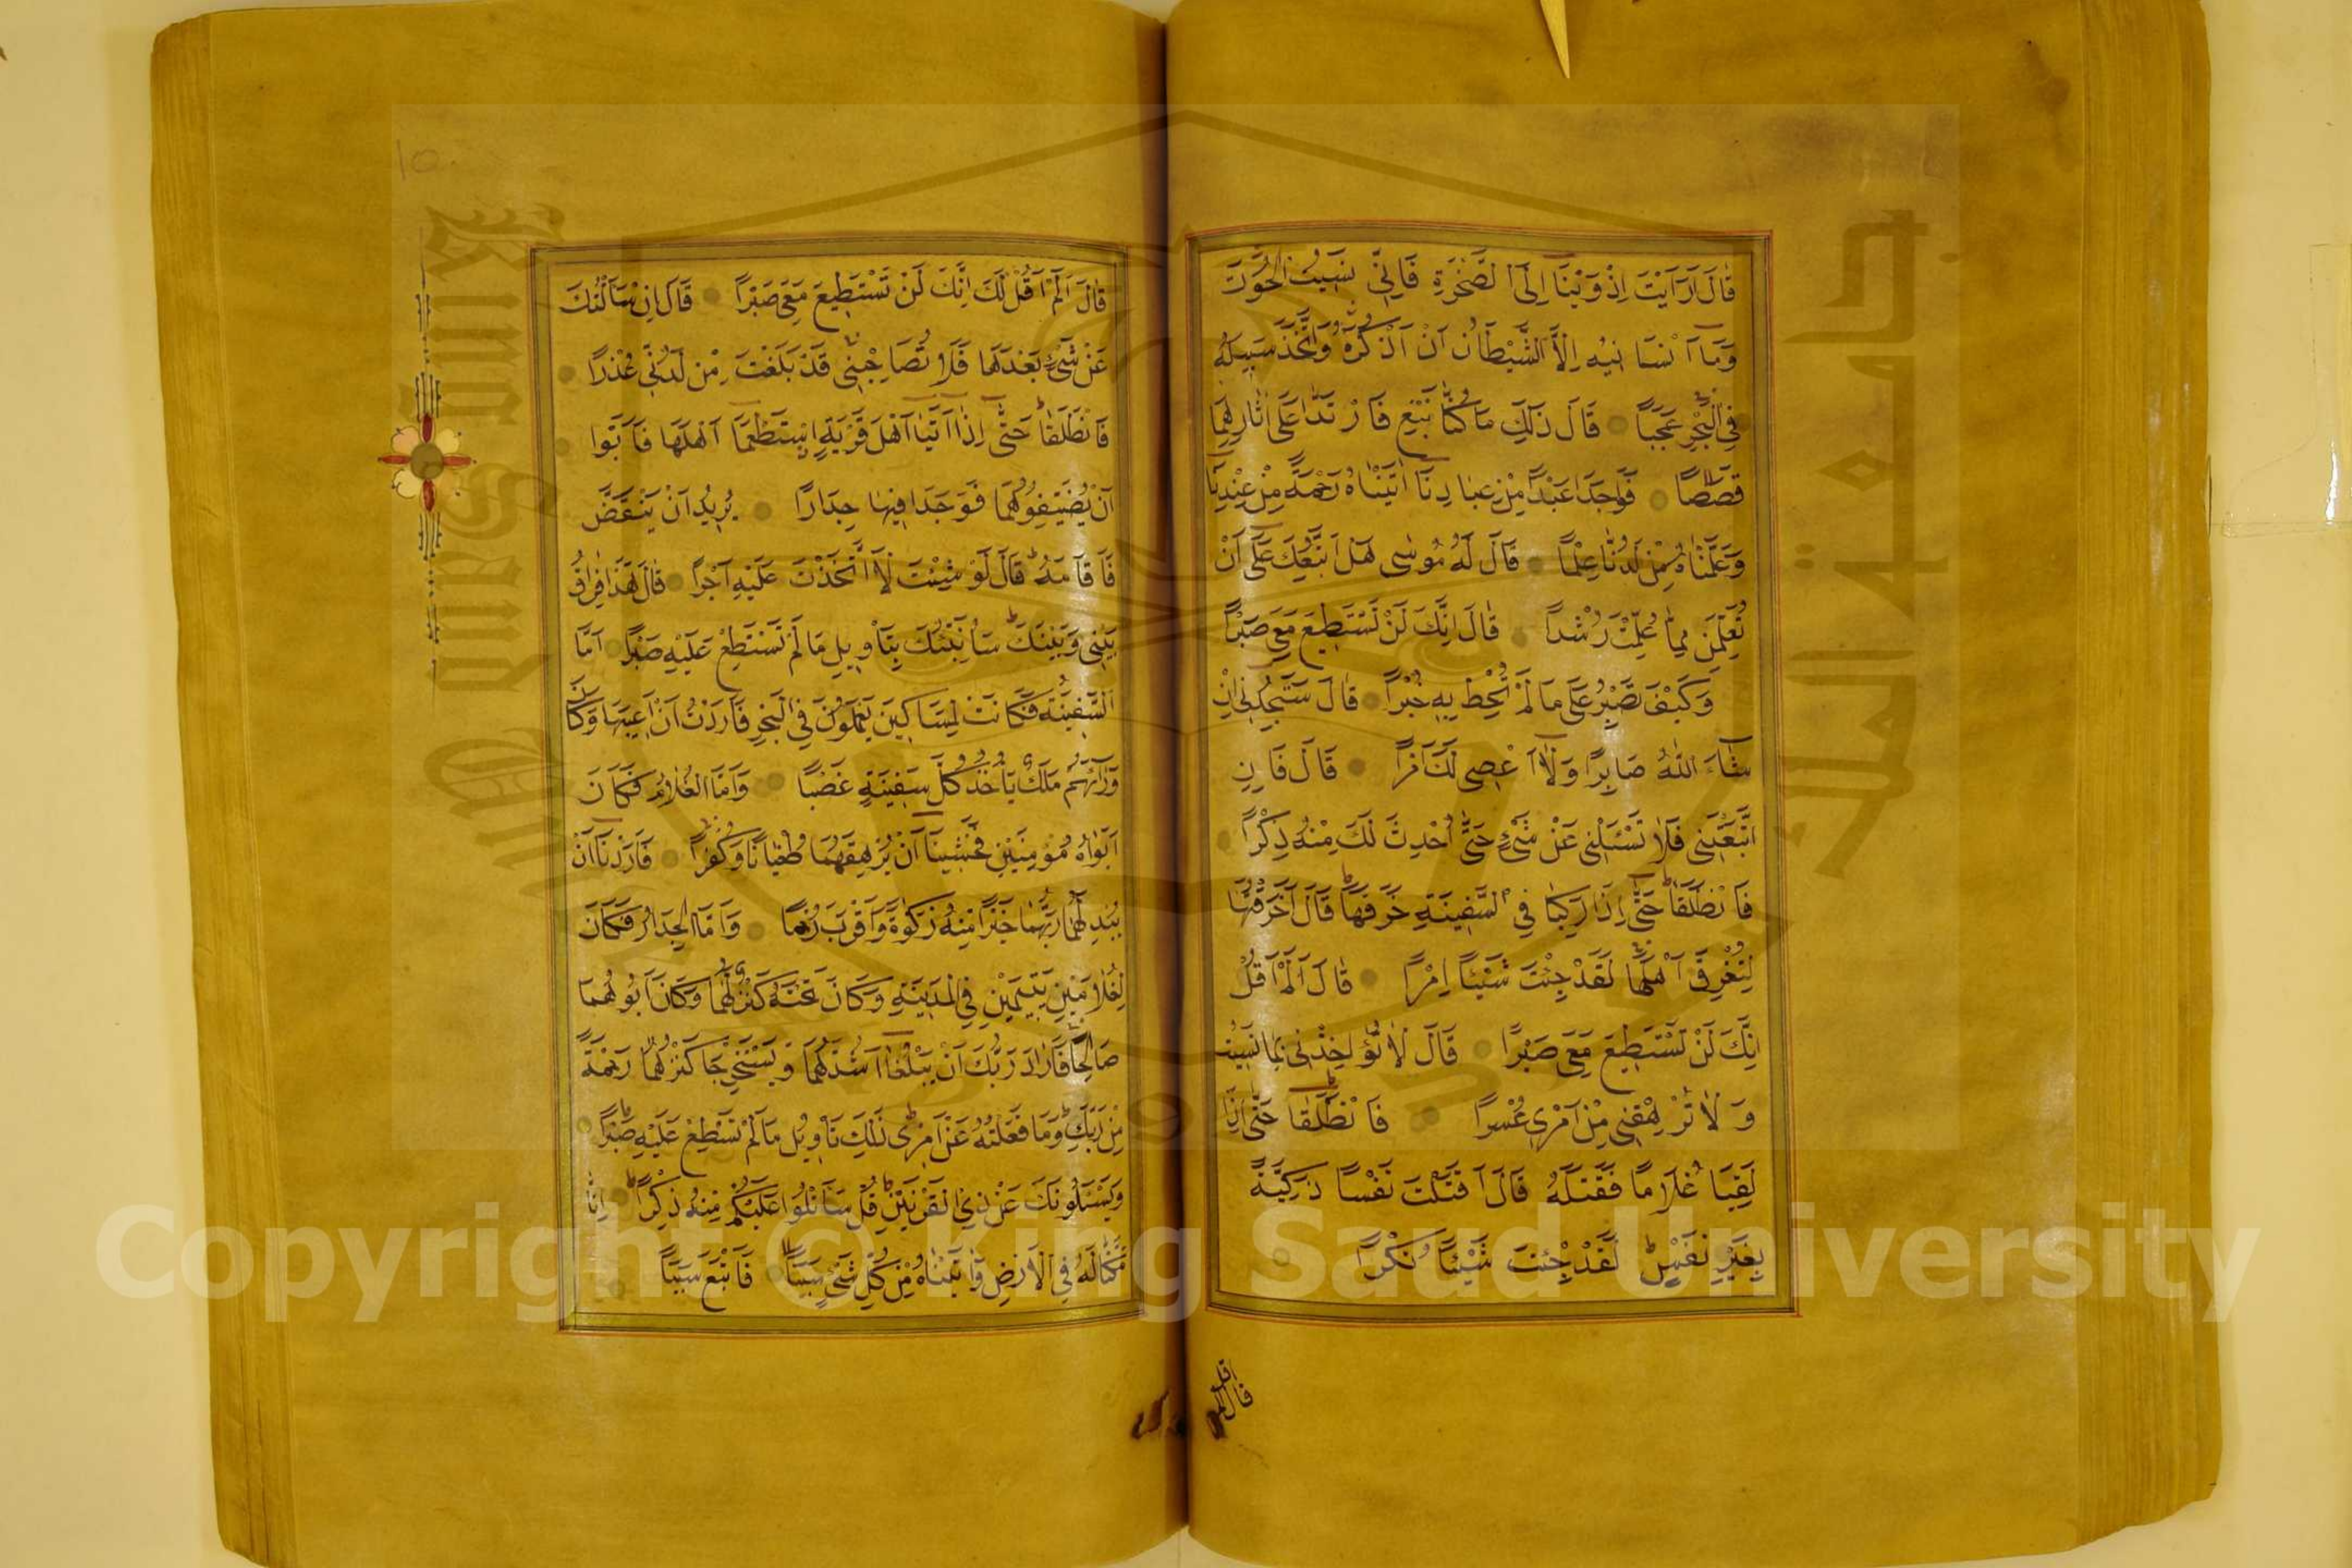 قَالَ اَرَاَيْتَ اِذْ اَوَيْنَا اِلَى الصَّخْرَةِ فَاِنِّي نَسِيتُ الْحُوتَ
وَمَا اَنْسَانِيهُ اِلاَّ الشَّيْطَانُ اَنْ اَذْكُرَهُ وَاتَّخَذَ سَبِيلَهُ
فِي الْبَحْرِ عَجَبًا قَالَ ذَلِكَ مَا كُنَّا نَبْغِ فَارْتَدَّا عَلَى اٰثَارِهِمَا
قَصَصًا فَوَجَدَا عَبْدًا مِنْ عِبَادِنَا اٰتَيْنَاهُ رَحْمَةً مِنْ عِنْدِنَا
وَعَلَّمْنَاهُ مِنْ لَدُنَّا عِلْمًا قَالَ لَهُ مُوسٰى هَلْ اَتَّبِعُكَ عَلَى اَنْ
تُعَلِّمَنِ مِمَّا عُلِّمْتَ رُشْدًا قَالَ اِنَّكَ لَنْ تَسْتَطِيعَ مَعِيَ صَبْرًا
وَكَيْفَ تَصْبِرُ عَلَى مَا لَمْ تُحِطْ بِهِ خُبْرًا قَالَ سَتَجِدُنِي اِنْ
شَاءَ اللّٰهُ صَابِرًا وَلَا اَعْصِي لَكَ اَمْرًا قَالَ فَاِنِ
اتَّبَعْتَنِي فَلَا تَسْئَلْنِي عَنْ شَيْءٍ حَتَّى اُحْدِثَ لَكَ مِنْهُ ذِكْرًا
فَانْطَلَقَا حَتَّى اِذَا رَكِبَا فِي السَّفِينَةِ خَرَقَهَا قَالَ اَخَرَقْتَهَا
لِتُغْرِقَ اَهْلَهَا لَقَدْ جِئْتَ شَيْئًا اِمْرًا قَالَ اَلَمْ اَقُلْ
اِنَّكَ لَنْ تَسْتَطِيعَ مَعِيَ صَبْرًا قَالَ لَا تُؤَاخِذْنِي بِمَا نَسِيتُ
وَلَا تُرْهِقْنِي مِنْ اَمْرِي عُسْرًا فَانْطَلَقَا حَتَّى اِذَا
لَقِيَا غُلَامًا فَقَتَلَهُ قَالَ اَقَتَلْتَ نَفْسًا زَكِيَّةً
بِغَيْرِ نَفْسٍ لَقَدْ جِئْتَ شَيْئًا نُكْرًا
قال الم اقل
قَالَ اَلَمْ اَقُلْ لَكَ اِنَّكَ لَنْ تَسْتَطِيعَ مَعِيَ صَبْرًا قَالَ اِنْ سَاَلْتُكَ
عَنْ شَيْءٍ بَعْدَهَا فَلَا تُصَاحِبْنِي قَدْ بَلَغْتَ مِنْ لَدُنِّي عُذْرًا
فَانْطَلَقَا حَتَّى اِذَا اَتَيَا اَهْلَ قَرْيَةٍ اسْتَطْعَمَا اَهْلَهَا فَاَبَوْا
اَنْ يُضَيِّفُوهُمَا فَوَجَدَا فِيهَا جِدَارًا يُرِيدُ اَنْ يَنْقَضَّ
فَاَقَامَهُ قَالَ لَوْ شِئْتَ لَاتَّخَذْتَ عَلَيْهِ اَجْرًا قَالَ هَذَا فِرَاقُ
بَيْنِي وَبَيْنِكَ سَاُنَبِّئُكَ بِتَاْوِيلِ مَا لَمْ تَسْتَطِعْ عَلَيْهِ صَبْرًا اَمَّا
السَّفِينَةُ فَكَانَتْ لِمَسَاكِينَ يَعْمَلُونَ فِي الْبَحْرِ فَاَرَدْتُ اَنْ اَعِيبَهَا وَكَانَ
وَرَاءَهُمْ مَلِكٌ يَاْخُذُ كُلَّ سَفِينَةٍ غَصْبًا وَاَمَّا الْغُلَامُ فَكَانَ
اَبَوَاهُ مُؤْمِنَيْنِ فَخَشِينَا اَنْ يُرْهِقَهُمَا طُغْيَانًا وَكُفْرًا فَاَرَدْنَا اَنْ
يُبْدِلَهُمَا رَبُّهُمَا خَيْرًا مِنْهُ زَكٰوةً وَاَقْرَبَ رُحْمًا وَاَمَّا الْجِدَارُ فَكَانَ
لِغُلَامَيْنِ يَتِيمَيْنِ فِي الْمَدِينَةِ وَكَانَ تَحْتَهُ كَنْزٌ لَهُمَا وَكَانَ اَبُوهُمَا
صَالِحًا فَاَرَادَ رَبُّكَ اَنْ يَبْلُغَا اَشُدَّهُمَا وَيَسْتَخْرِجَا كَنْزَهُمَا رَحْمَةً
مِنْ رَبِّكَ وَمَا فَعَلْتُهُ عَنْ اَمْرِي ذَلِكَ تَاْوِيلُ مَا لَمْ تَسْطِعْ عَلَيْهِ صَبْرًا
وَيَسْئَلُونَكَ عَنْ ذِي الْقَرْنَيْنِ قُلْ سَاَتْلُوا عَلَيْكُمْ مِنْهُ ذِكْرًا اِنَّا
مَكَّنَّا لَهُ فِي الْاَرْضِ وَاٰتَيْنَاهُ مِنْ كُلِّ شَيْءٍ سَبَبًا فَاَتْبَعَ سَبَبًا
Copyright © King Saud University